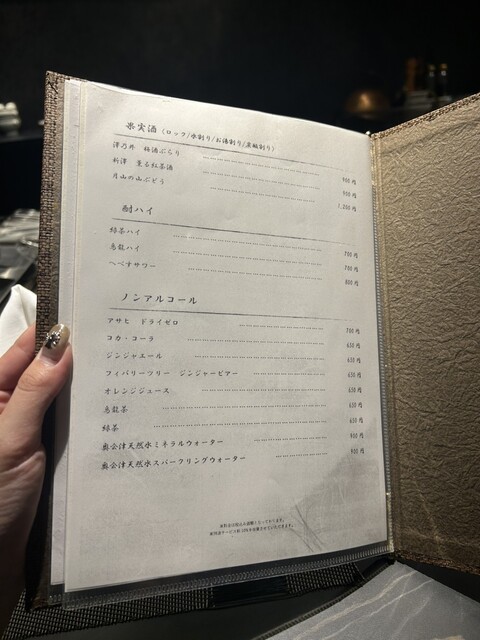 果実酒（ロック/水割り/お湯割り/炭酸割り）
澤乃井 梅酒ぷらり 900円
新澤 薫る紅茶酒 900円
月山の山ぶどう 1,200円
酎ハイ
緑茶ハイ 700円
烏龍ハイ 700円
へべすサワー 800円
ノンアルコール
アサヒ ドライゼロ 700円
コカ・コーラ 650円
ジンジャエール 650円
フィバリーツリー ジンジャービアー 650円
オレンジジュース 650円
烏龍茶 650円
緑茶 650円
奥会津天然水ミネラルウォーター 900円
奥会津天然水スパークリングウォーター 900円
表料金は税込み価格となっております。
別途サービス料10%を加算させていただきます。